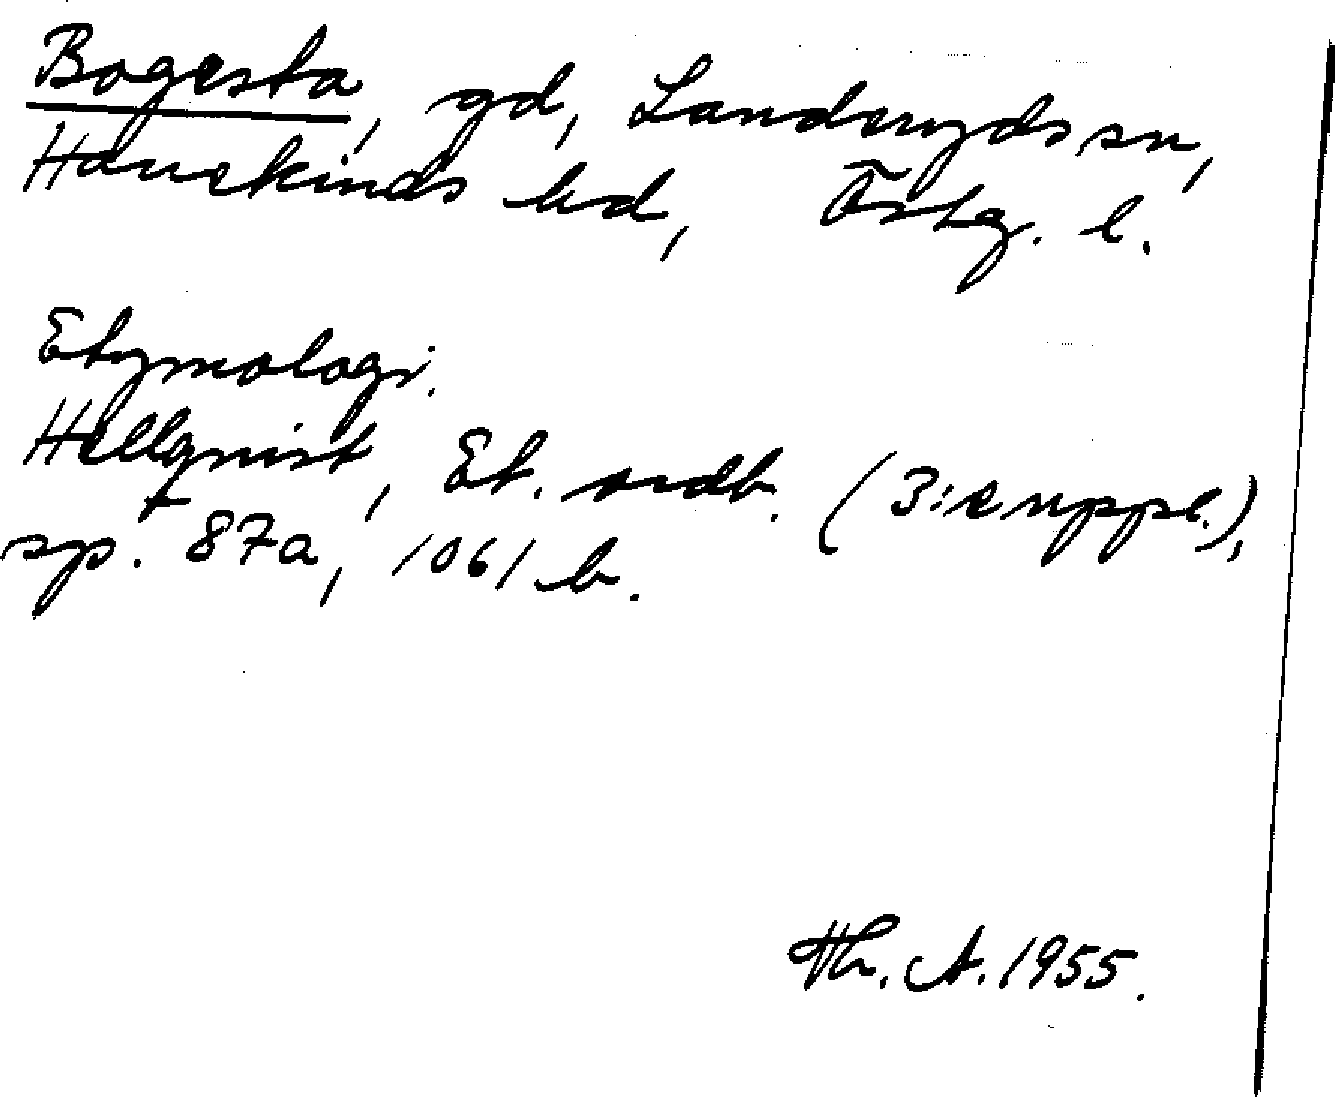 Bogesta, gd, Landeryds sn,
Hanekinds hd, Östg. l.
Etymologi.
Hellquist, Et. ordb. (3:e uppl.),
sp. 87a, 1061 b.
Th. A. 1955.